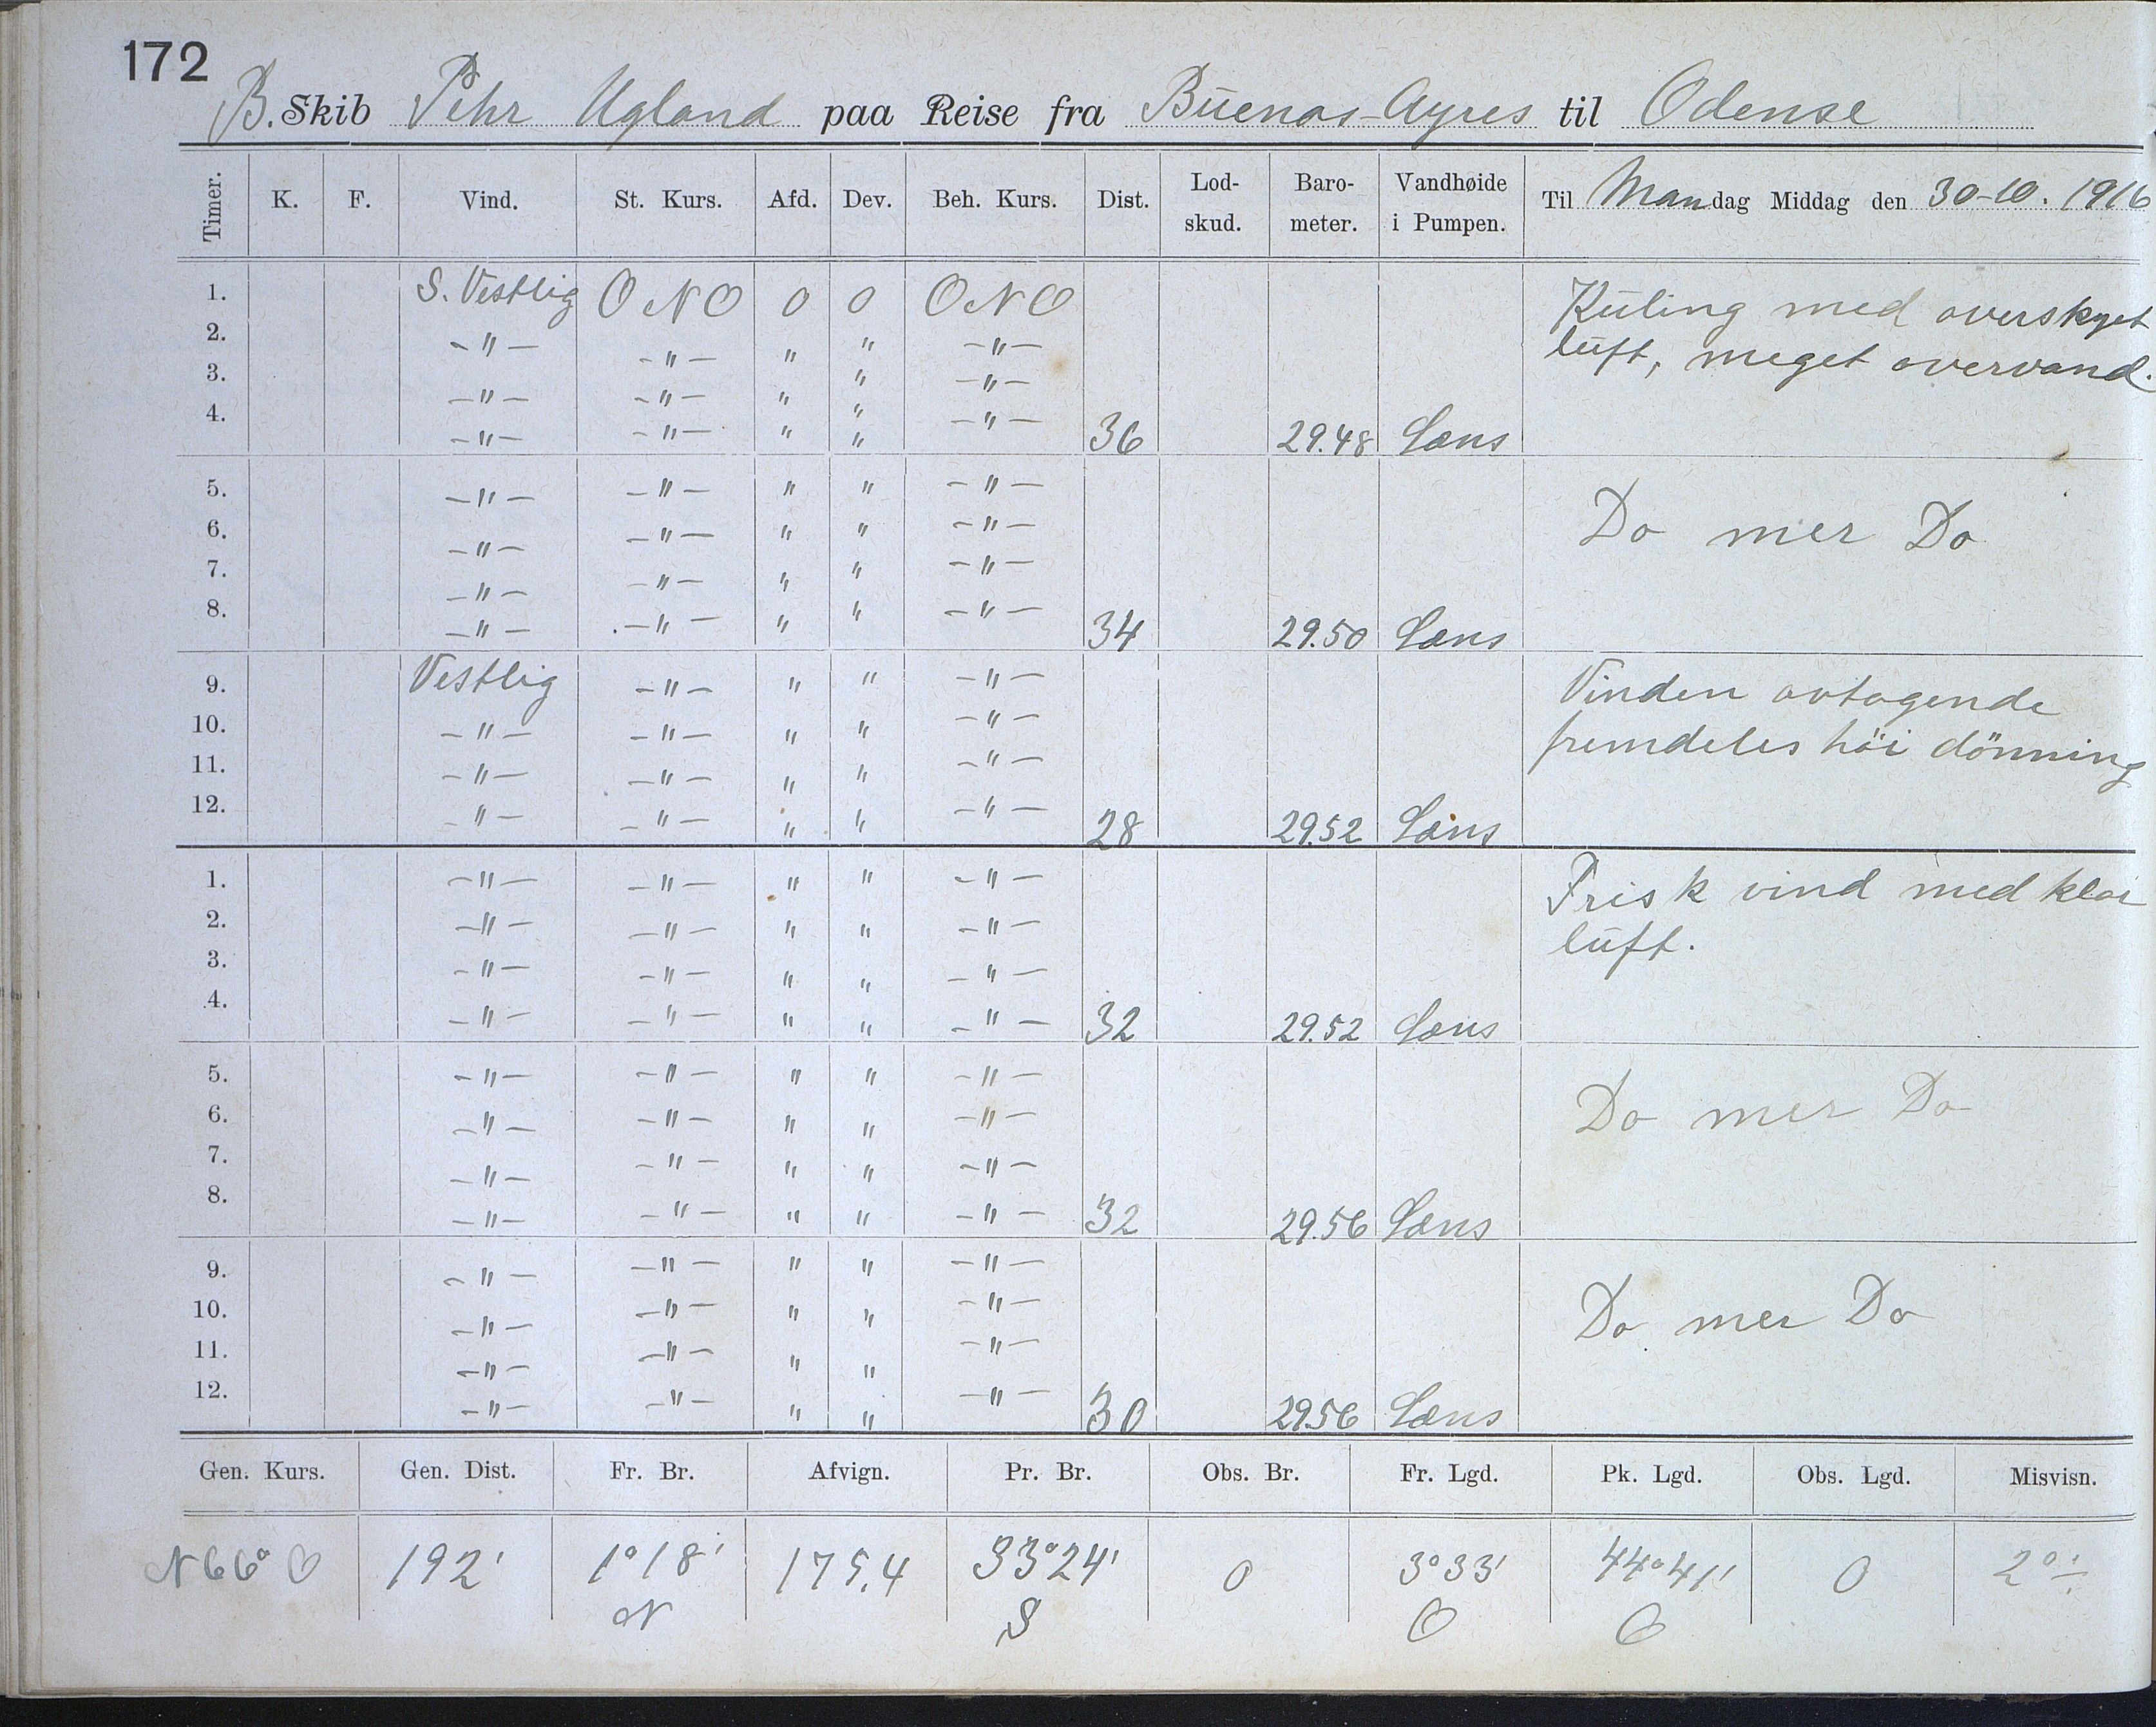 172
B. Skib Pehr Ugland paa Reise fra Buenos-Ayres til Odense
Timer. K. F. Vind. St. Kurs. Afd. Dev. Beh. Kurs. Dist. Lod-skud. Baro-meter. Vandhøide i Pumpen. Til Mandag Middag den 30-10. 1916
1. S. Vestlig ONO 0 0 ONO Kuling med overskyet
2. -"- -"- " " -"- luft, meget overvand.
3. -"- -"- " " -"-
4. -"- -"- " " -"- 36 29.48 Læns
5. -"- -"- " " -"-
6. -"- -"- " " -"- Do mer Do
7. -"- -"- " " -"-
8. -"- -"- " " -"- 34 29.50 Læns
9. Vestlig -"- " " -"- Vinden avtagende
10. -"- -"- " " -"- fremdeles höi dönning
11. -"- -"- " " -"-
12. -"- -"- " " -"- 28 29.52 Læns
1. -"- -"- " " -"- Frisk vind med klar
2. -"- -"- " " -"- luft.
3. -"- -"- " " -"-
4. -"- -"- " " -"- 32 29.52 Læns
5. -"- -"- " " -"-
6. -"- -"- " " -"- Do mer Do
7. -"- -"- " " -"-
8. -"- -"- " " -"- 32 29.56 Læns
9. -"- -"- " " -"-
10. -"- -"- " " -"- Do mer Do
11. -"- -"- " " -"-
12. -"- -"- " " -"- 30 29.56 Læns
Gen. Kurs. Gen. Dist. Fr. Br. Afvign. Pr. Br. Obs. Br. Fr. Lgd. Pk. Lgd. Obs. Lgd. Misvisn.
N 66° O 192' 1°18' N 175,4 33°24' S 0 3°33' O 44°41' O 0 2° ÷